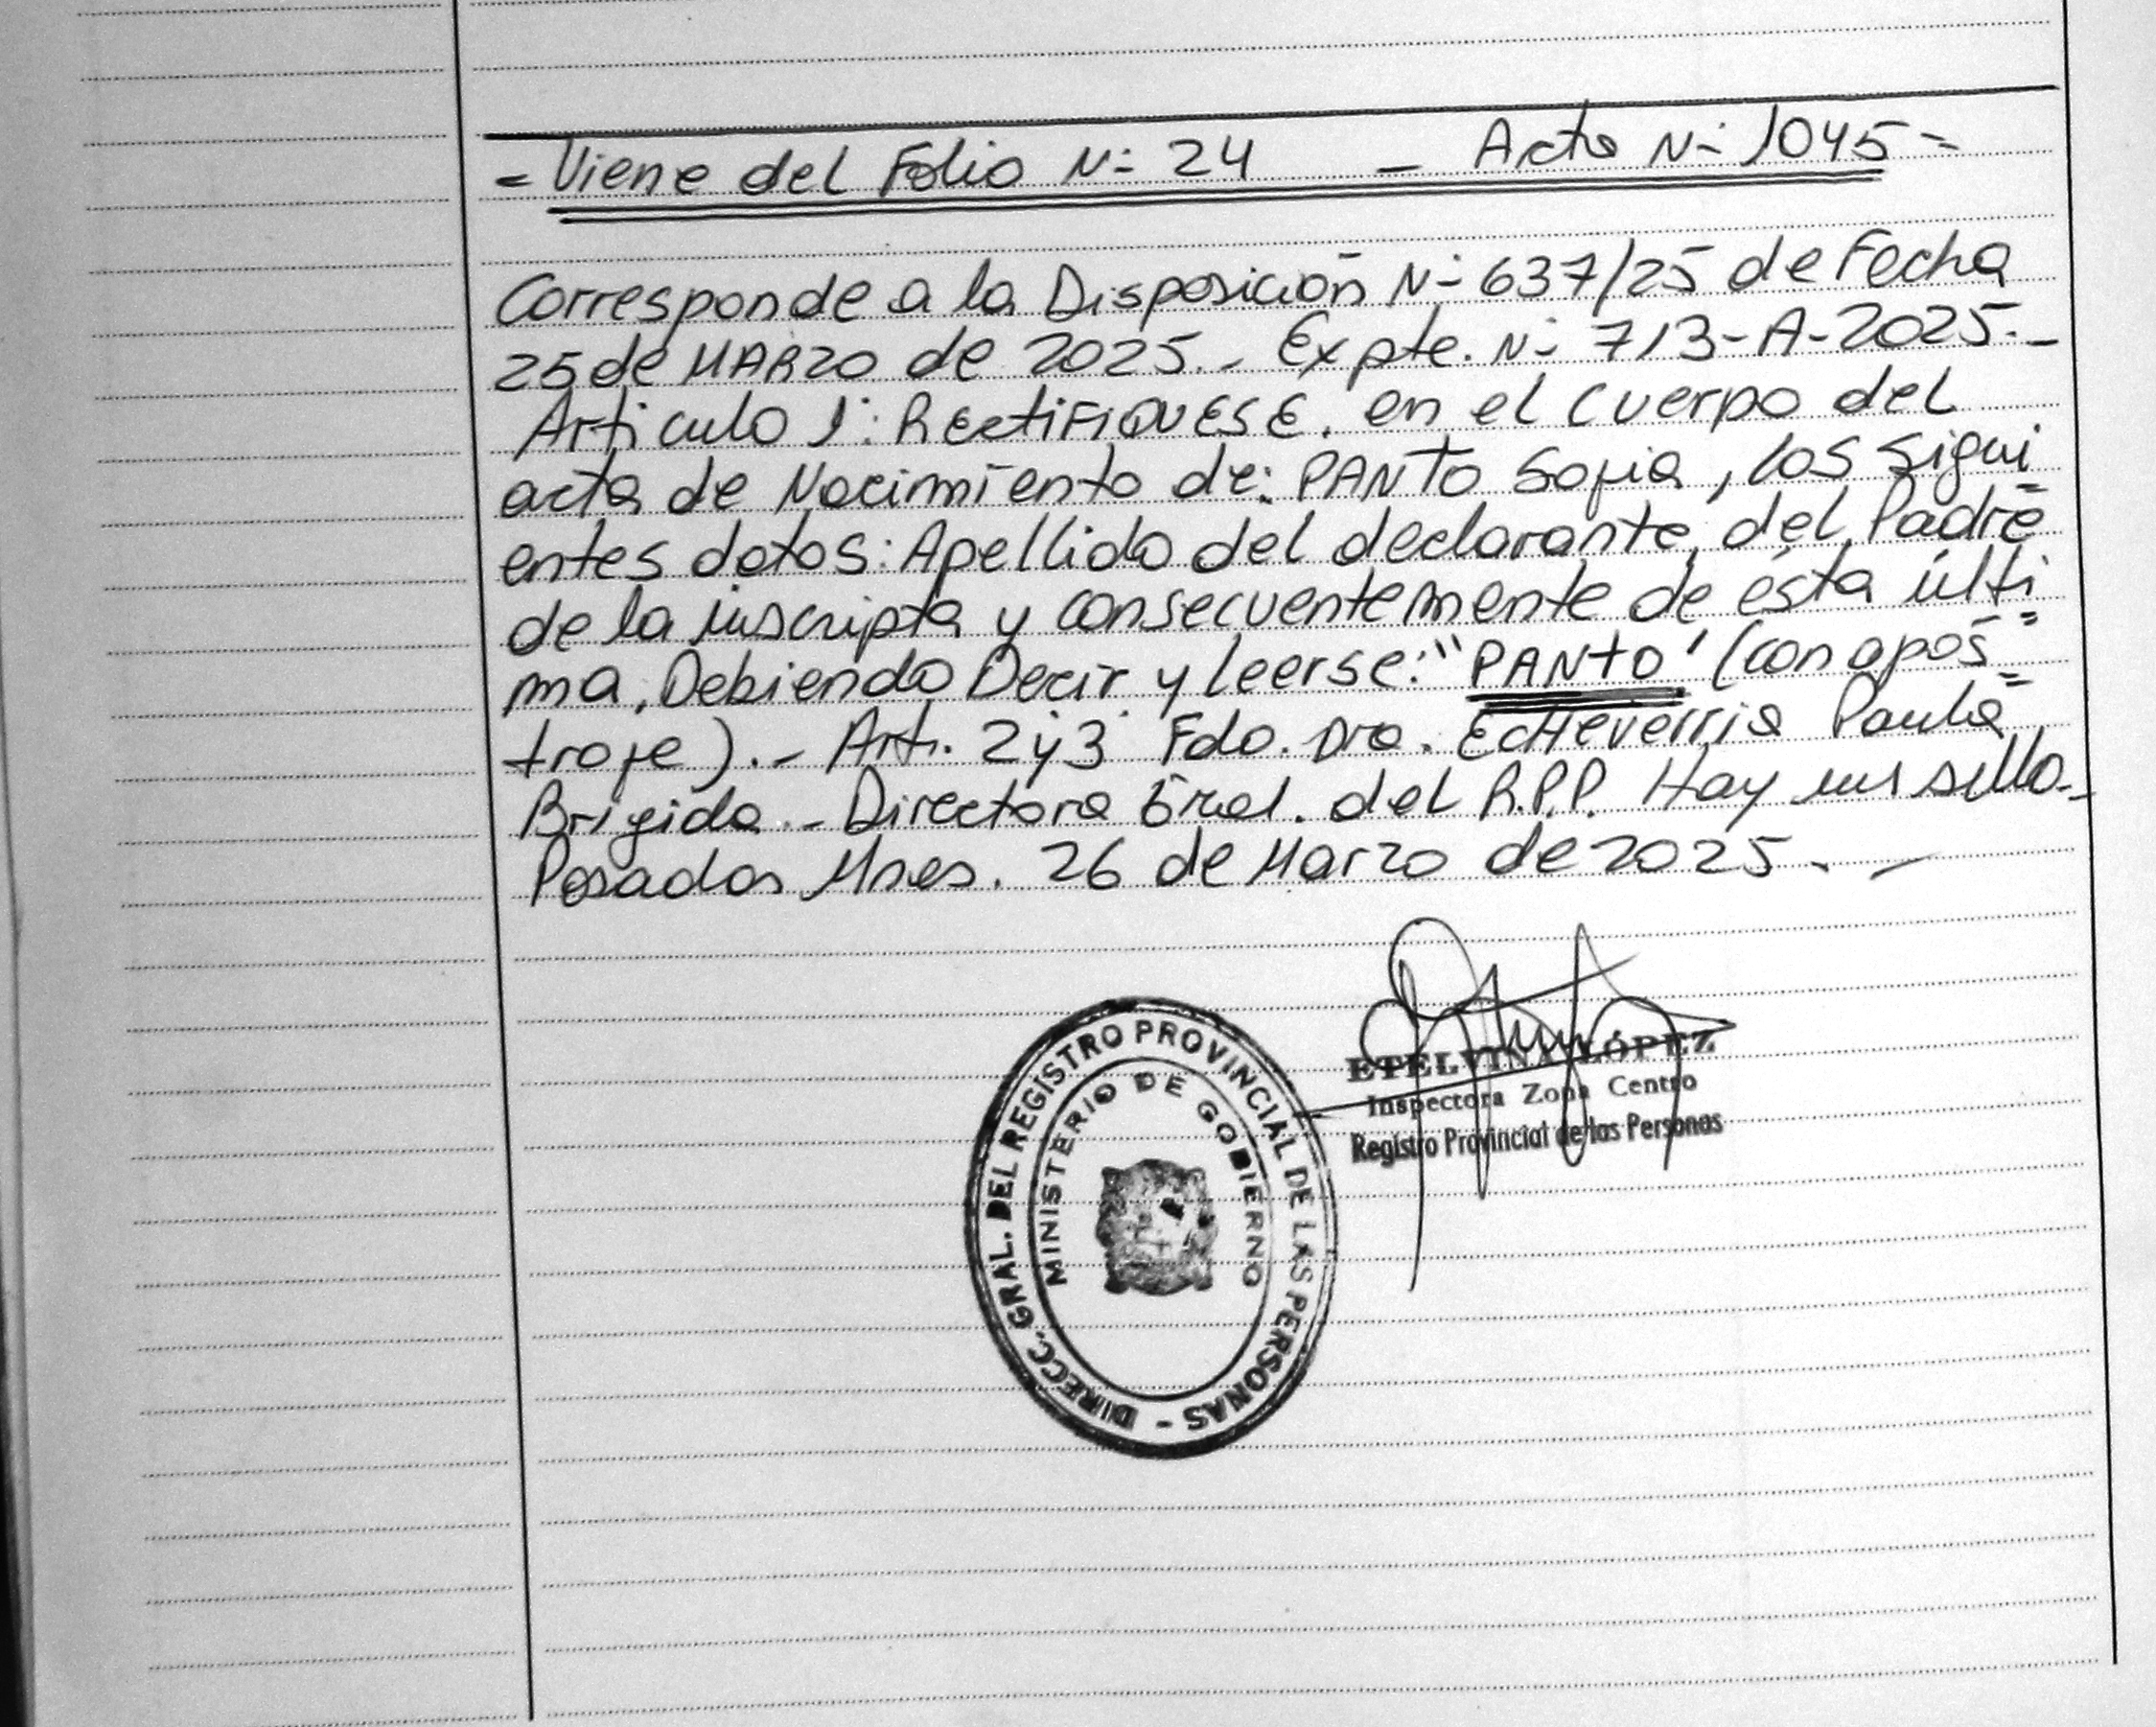 = Viene del Folio N- 24 - Acta N- 1045 =
Corresponde a la Disposición N- 637/25 de Fecha
25 de MARZO de 2025.- Expte. N- 713-A-2025.-
Articulo 1: RECTIFIQUESE. en el cuerpo del
acta de Nacimiento de: PANTO Sofia, los sigui
entes datos: Apellido del declarante, del Padre
de la inscripta y consecuentemente de ésta últi=
ma, Debiendo Decir y leerse: "PANTO' (con apos=
trofe).- Art. 2 y 3 Fdo. Dra. Echeverria Paula
Brigida.- Directora Gral. del R.P.P. Hay un sello.-
Posadas Mnes. 26 de Marzo de 2025.-
ETELVINA LÓPEZ
Inspectora Zona Centro
Registro Provincial de las Personas
DIRECC. GRAL. DEL REGISTRO PROVINCIAL DE LAS PERSONAS -
MINISTERIO DE GOBIERNO